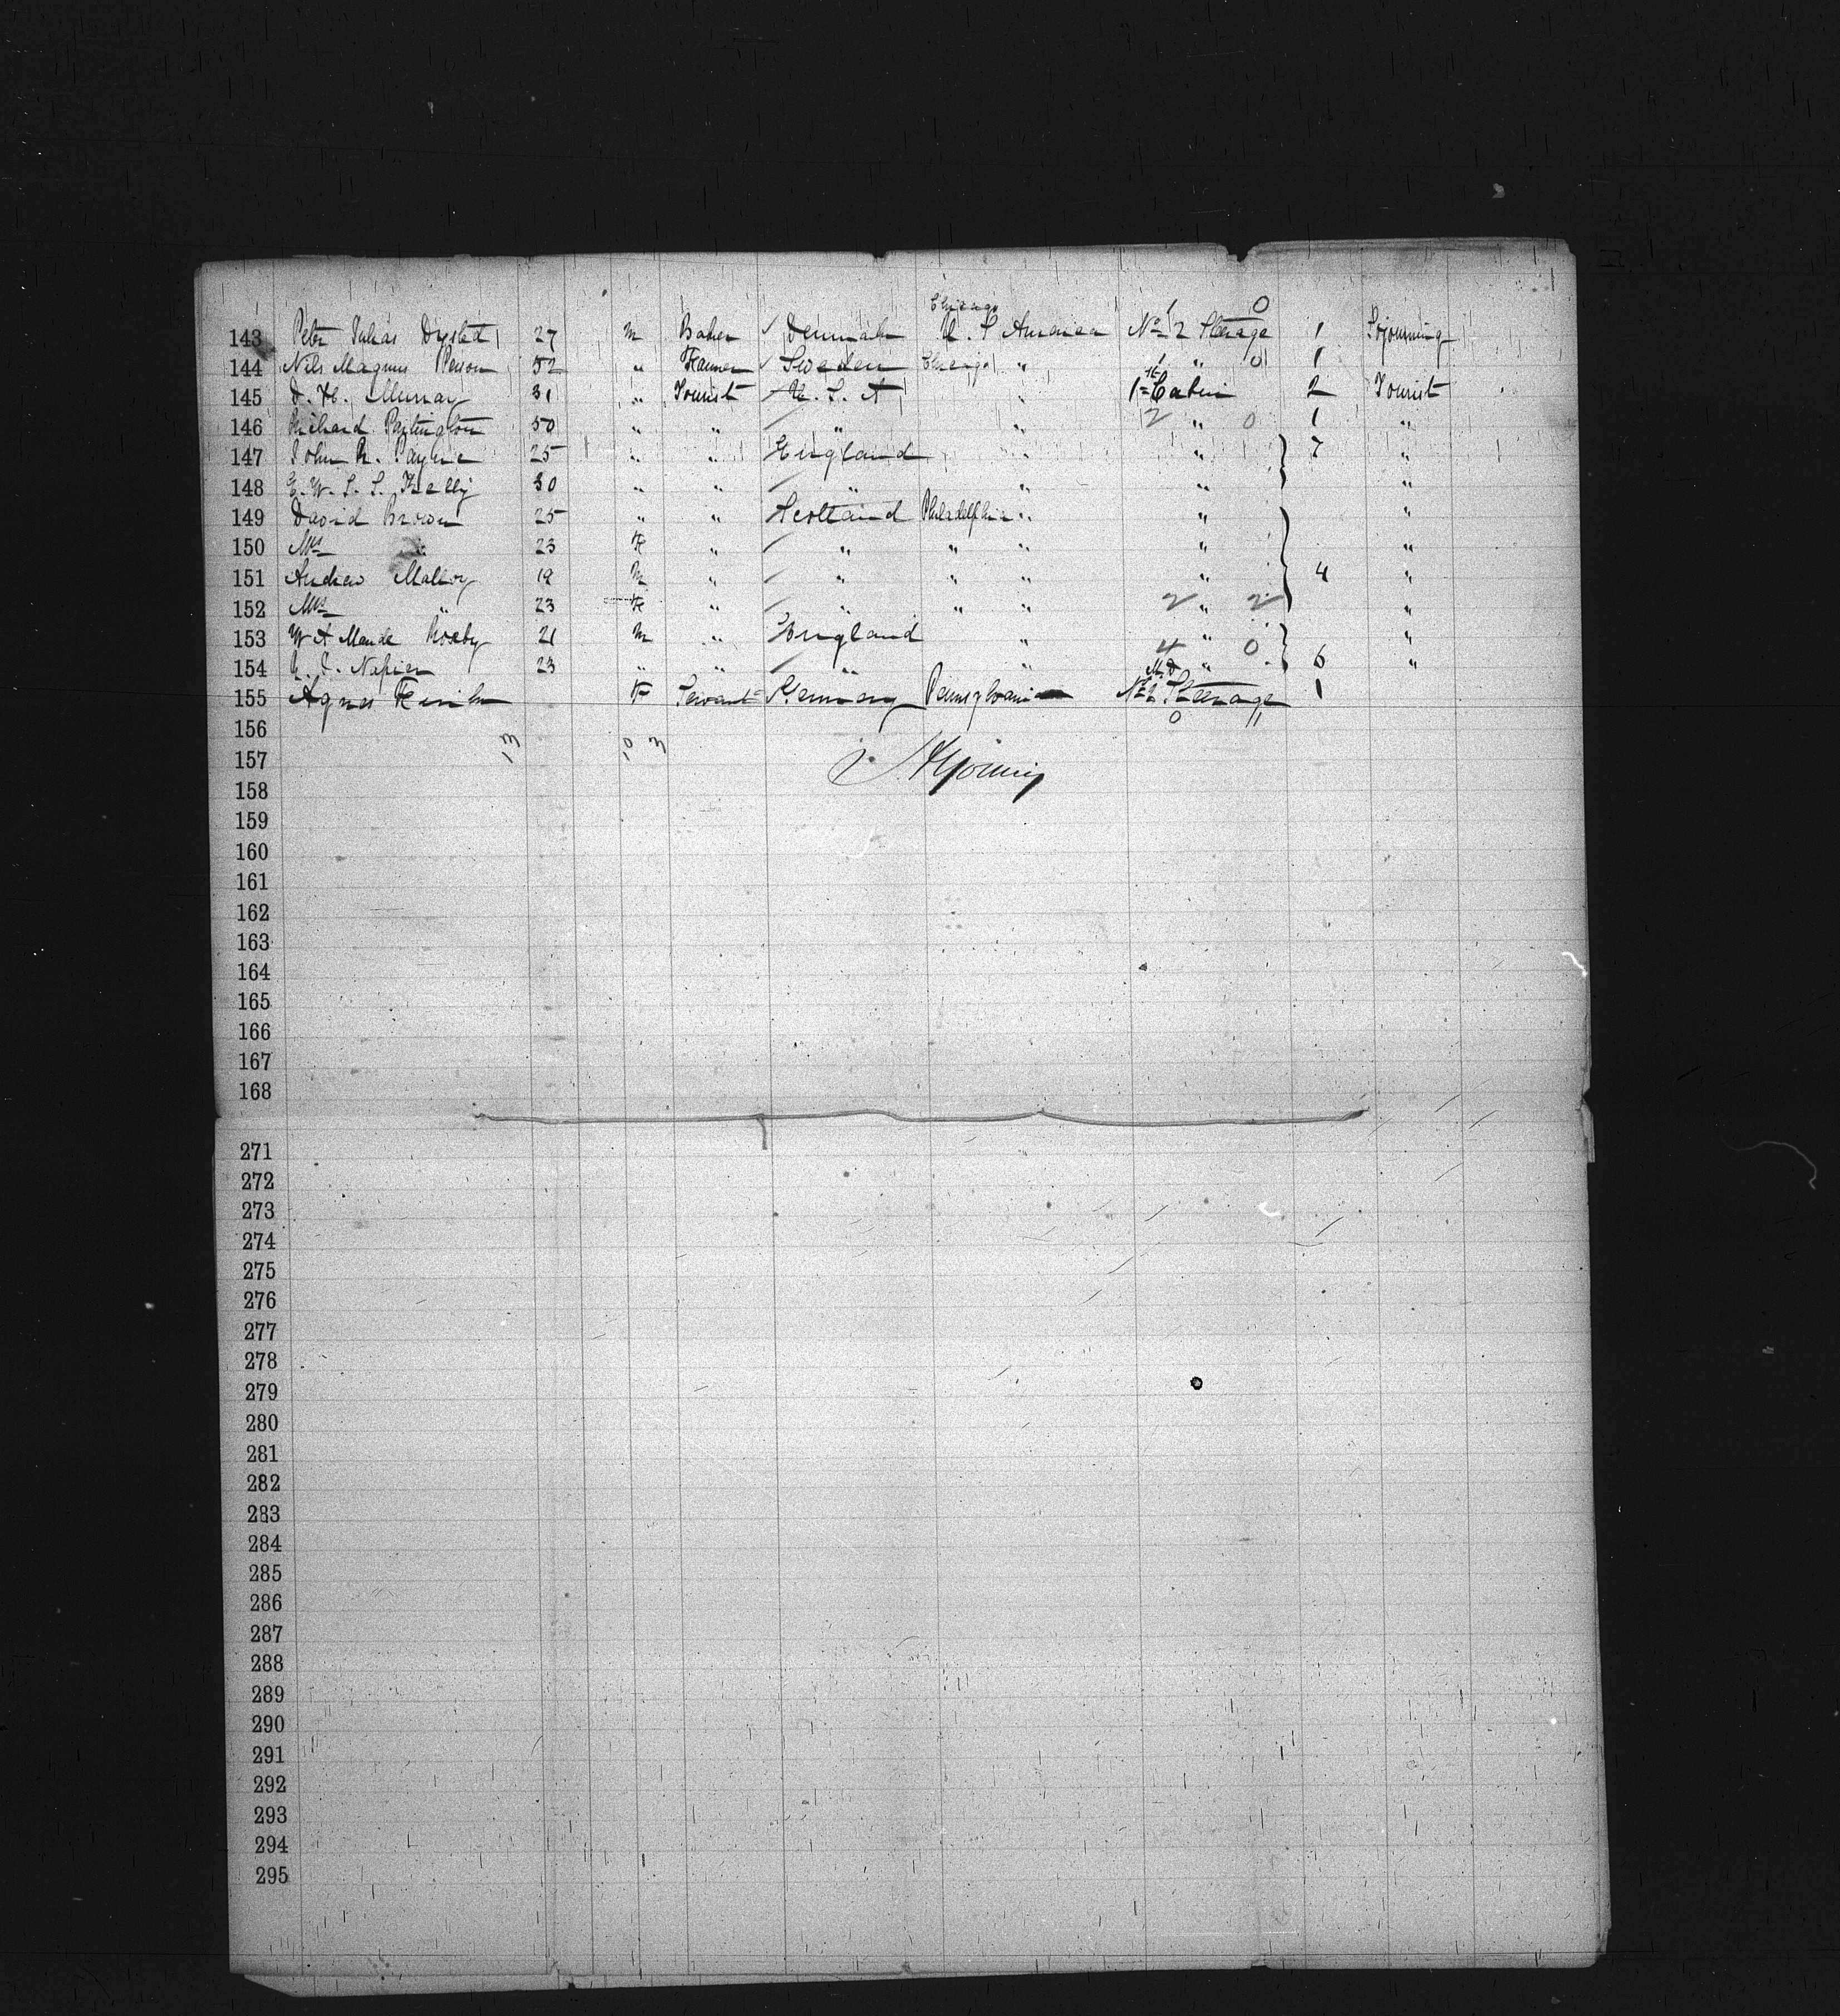 Chicago 1 0
143 Peter Julius Dysted 27 m Baker ✓ Denmark U. S America No 2 Steerage 1 Sojourning
144 Nils Magnus Person 52 " Farmer ✓ Sweden Chicago " 1 " 0 1
145 D. H. Murray 31 " Tourist U. S. A " 1st Cabin 2 Tourist
146 Richard Partington 50 " " " " 2 " 0 1 "
147 John R. Payne 25 " " England " " 7 "
148 E. W. S. S. Kelly 30 " " " " " "
149 David Brown 25 " " Scotland Philadelphia " " "
150 Mrs " 23 F " " " " " "
151 Andrew Malloy 19 m " " " " " 4 "
152 Mrs " 23 F " " " " 2 " 2 "
153 W A Maude Roxby 21 m " England " " "
4 0
154 Napier 23 " " " " " 6 "
155 Agnes F Servant Germany Pennsylvania No 2 Steerage 1
0 11
156
13 10 3
157
158
159
160
161
162
163
164
165
166
167
168
271
272
273
274
275
276
277
278
279
280
281
282
283
284
285
286
287
288
289
290
291
292
293
294
295